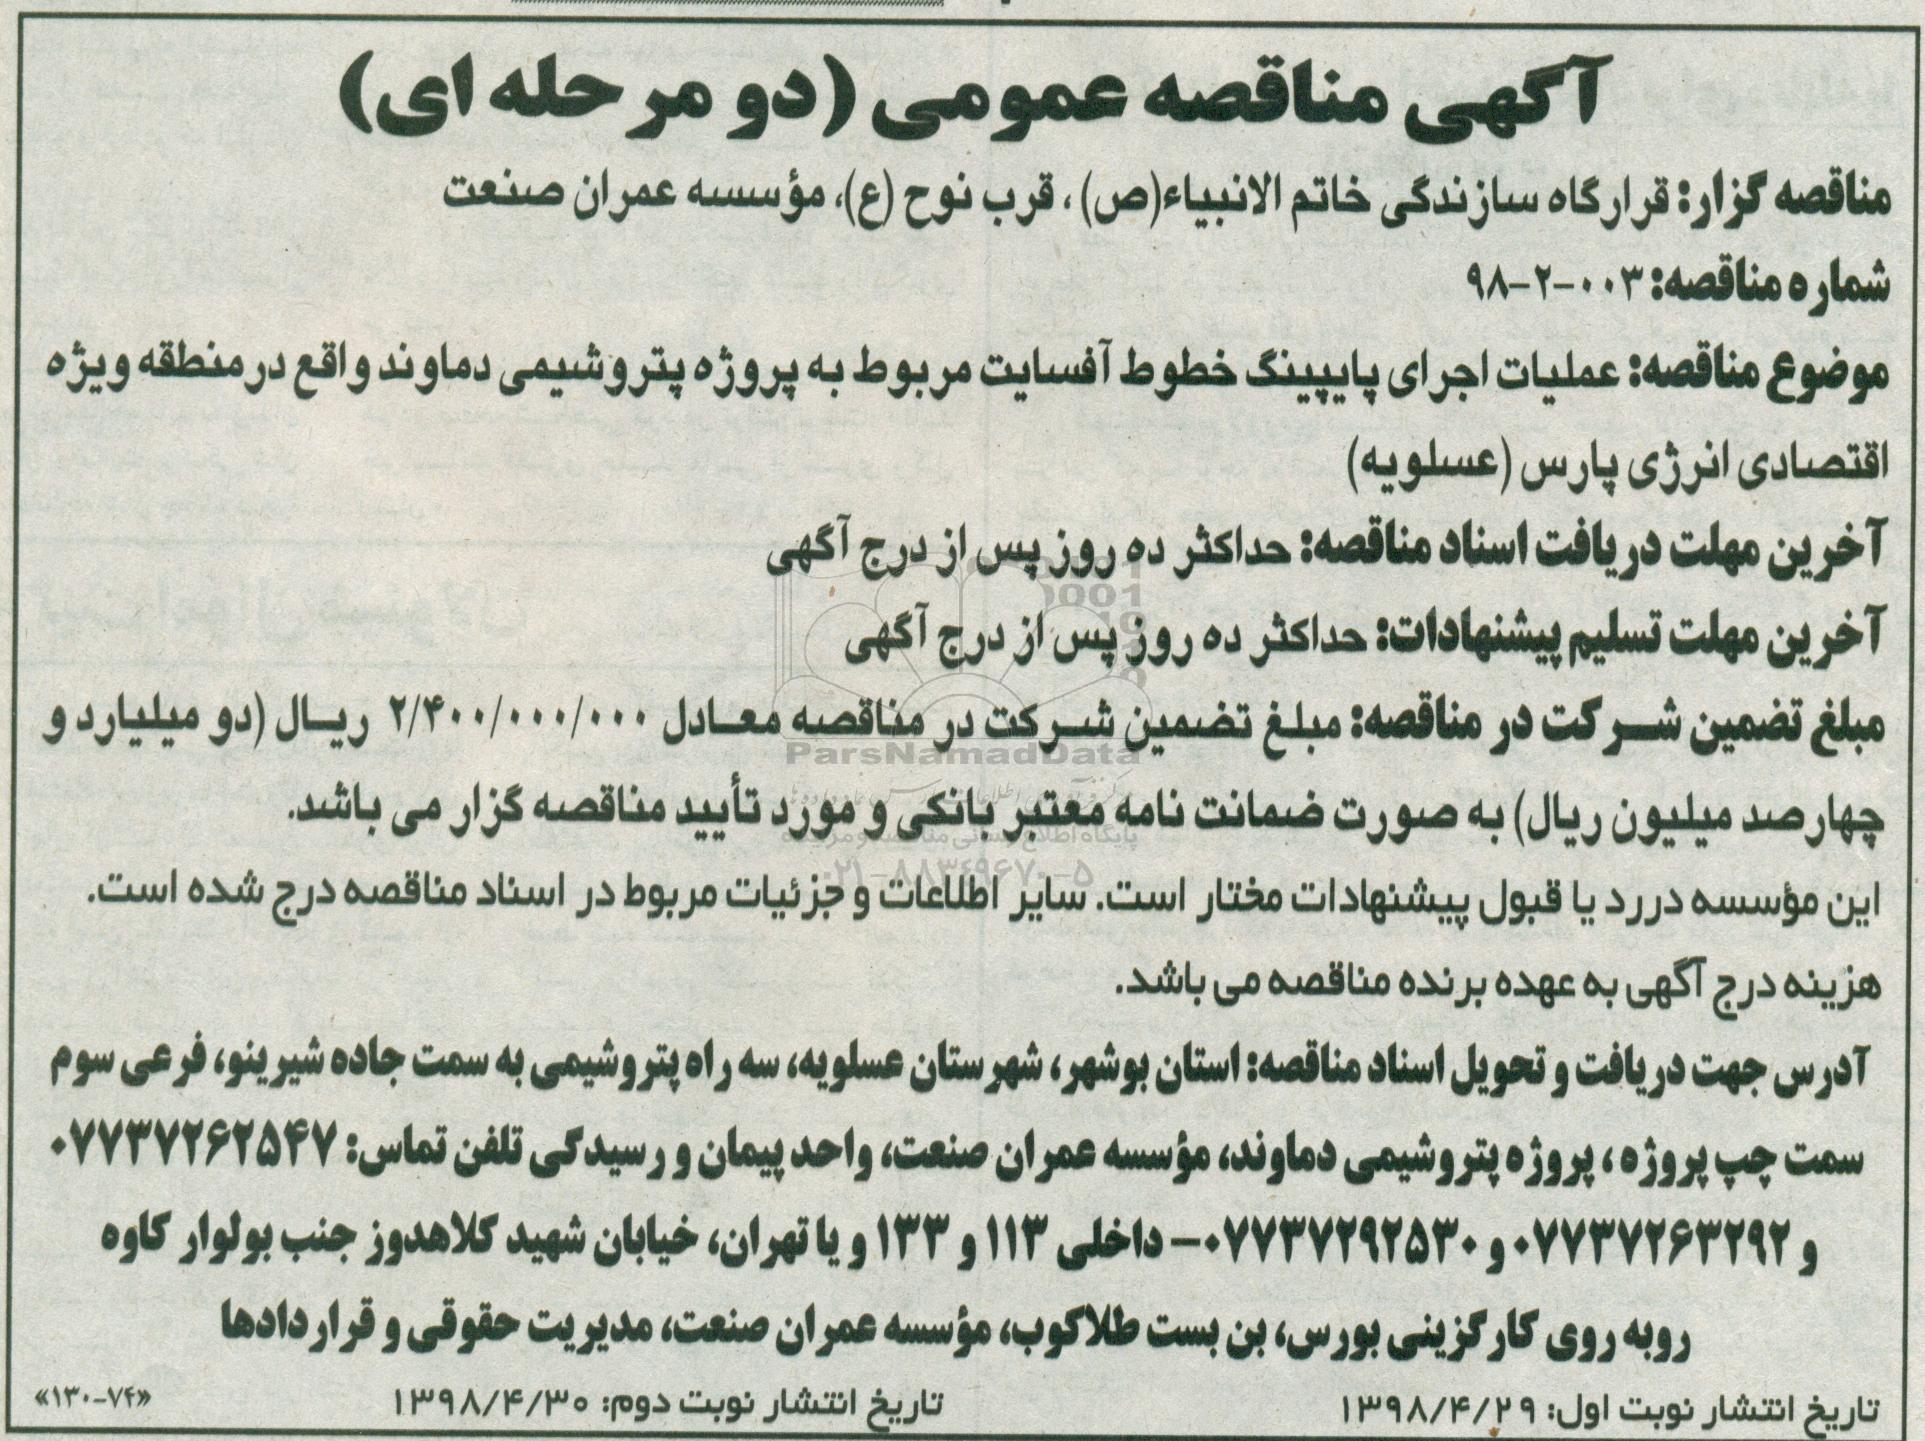 آگهی مناقصه عمومی (دو مرحله ای)
مناقصه گزار: قرارگاه سازندگی خاتم الانبیاء(ص)، قرب نوح (ع)، مؤسسه عمران صنعت
شماره مناقصه: ۰۰۳-۲-۹۸
موضوع مناقصه: عملیات اجرای پایپینگ خطوط آفسایت مربوط به پروژه پتروشیمی دماوند واقع درمنطقه ویژه
اقتصادی انرژی پارس (عسلویه)
آخرین مهلت دریافت اسناد مناقصه: حداکثر ده روز پس از درج آگهی
آخرین مهلت تسلیم پیشنهادات: حداکثر ده روز پس از درج آگهی
مبلغ تضمین شرکت در مناقصه: مبلغ تضمین شرکت در مناقصه معادل ۲/۴۰۰/۰۰۰/۰۰۰ ریال (دو میلیارد و
ParsNamadData
چهارصد میلیون ریال) به صورت ضمانت نامه معتبر بانکی و مورد تأیید مناقصه گزار می باشد.
پایگاه اطلاع رسانی مناقصه و مزایده
۰۲۱-۸۸۳۴۹۶۷۰-۵
این مؤسسه دررد یا قبول پیشنهادات مختار است. سایر اطلاعات و جزئیات مربوط در اسناد مناقصه درج شده است.
هزینه درج آگهی به عهده برنده مناقصه می باشد.
آدرس جهت دریافت و تحویل اسناد مناقصه: استان بوشهر، شهرستان عسلویه، سه راه پتروشیمی به سمت جاده شیرینو، فرعی سوم
سمت چپ پروژه، پروژه پتروشیمی دماوند، مؤسسه عمران صنعت، واحد پیمان و رسیدگی تلفن تماس: ۰۷۷۳۷۲۶۲۵۴۷
و ۰۷۷۳۷۲۶۳۲۹۲ و ۰۷۷۳۷۲۹۲۵۳۰- داخلی ۱۱۳ و ۱۳۳ و یا تهران، خیابان شهید کلاهدوز جنب بولوار کاوه
روبه روی کارگزینی بورس، بن بست طلاکوب، مؤسسه عمران صنعت، مدیریت حقوقی و قراردادها
تاریخ انتشار نوبت اول: ۱۳۹۸/۴/۲۹ تاریخ انتشار نوبت دوم: ۱۳۹۸/۴/۳۰ «۱۳۰-۷۴»